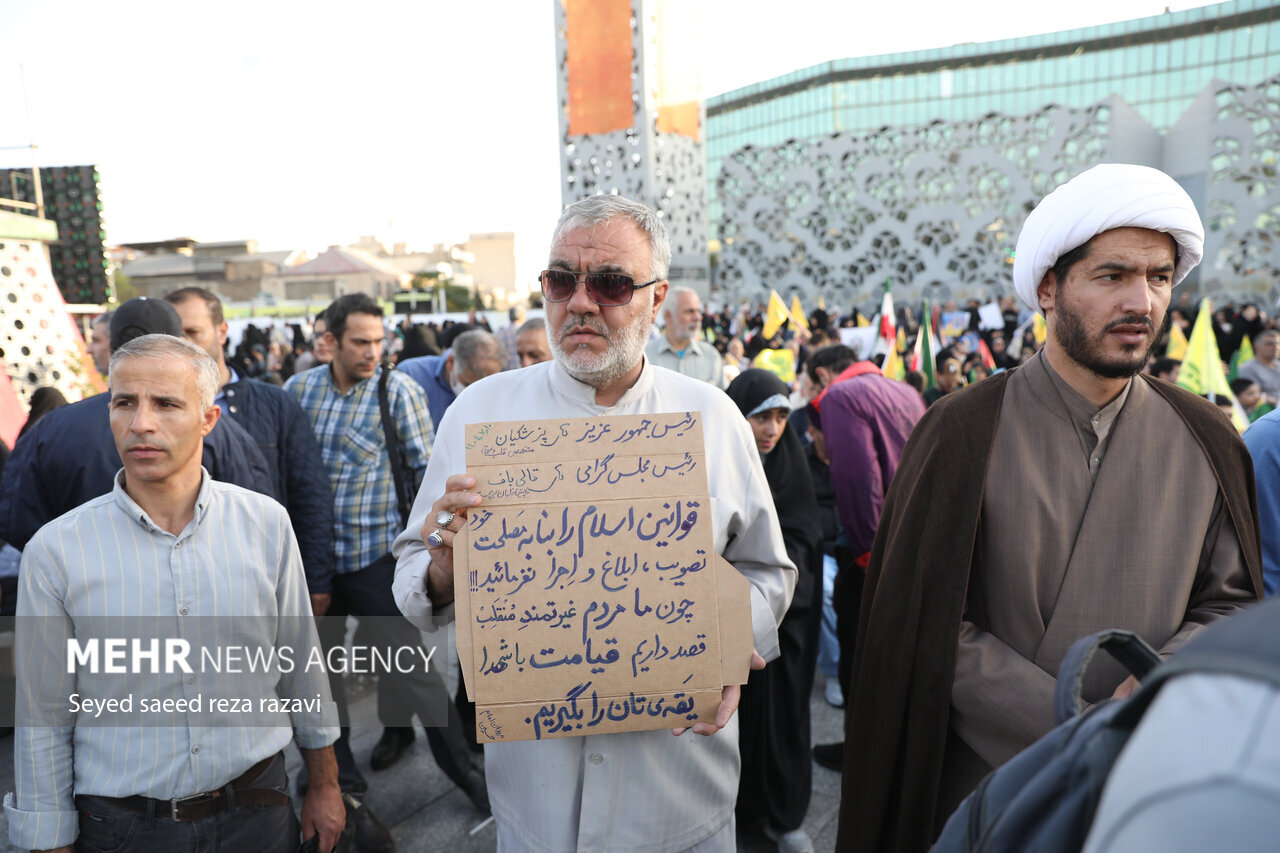 رئیس جمهور عزیز آقای پزشکیان
متخصص قلب و عروق
رئیس مجلس گرامی آقای قالی باف
قوانین اسلام را بنا به مَصلحت خود
تصویب، ابلاغ و اِجرا نفرمائید!!!
چون ما مردم غیرتمندِ مُنْقَلِبْ
قصد داریم قیامت با شهدا
یَقه‌ی تان را بگیریم.
MEHR NEWS AGENCY
Seyed saeed reza razavi